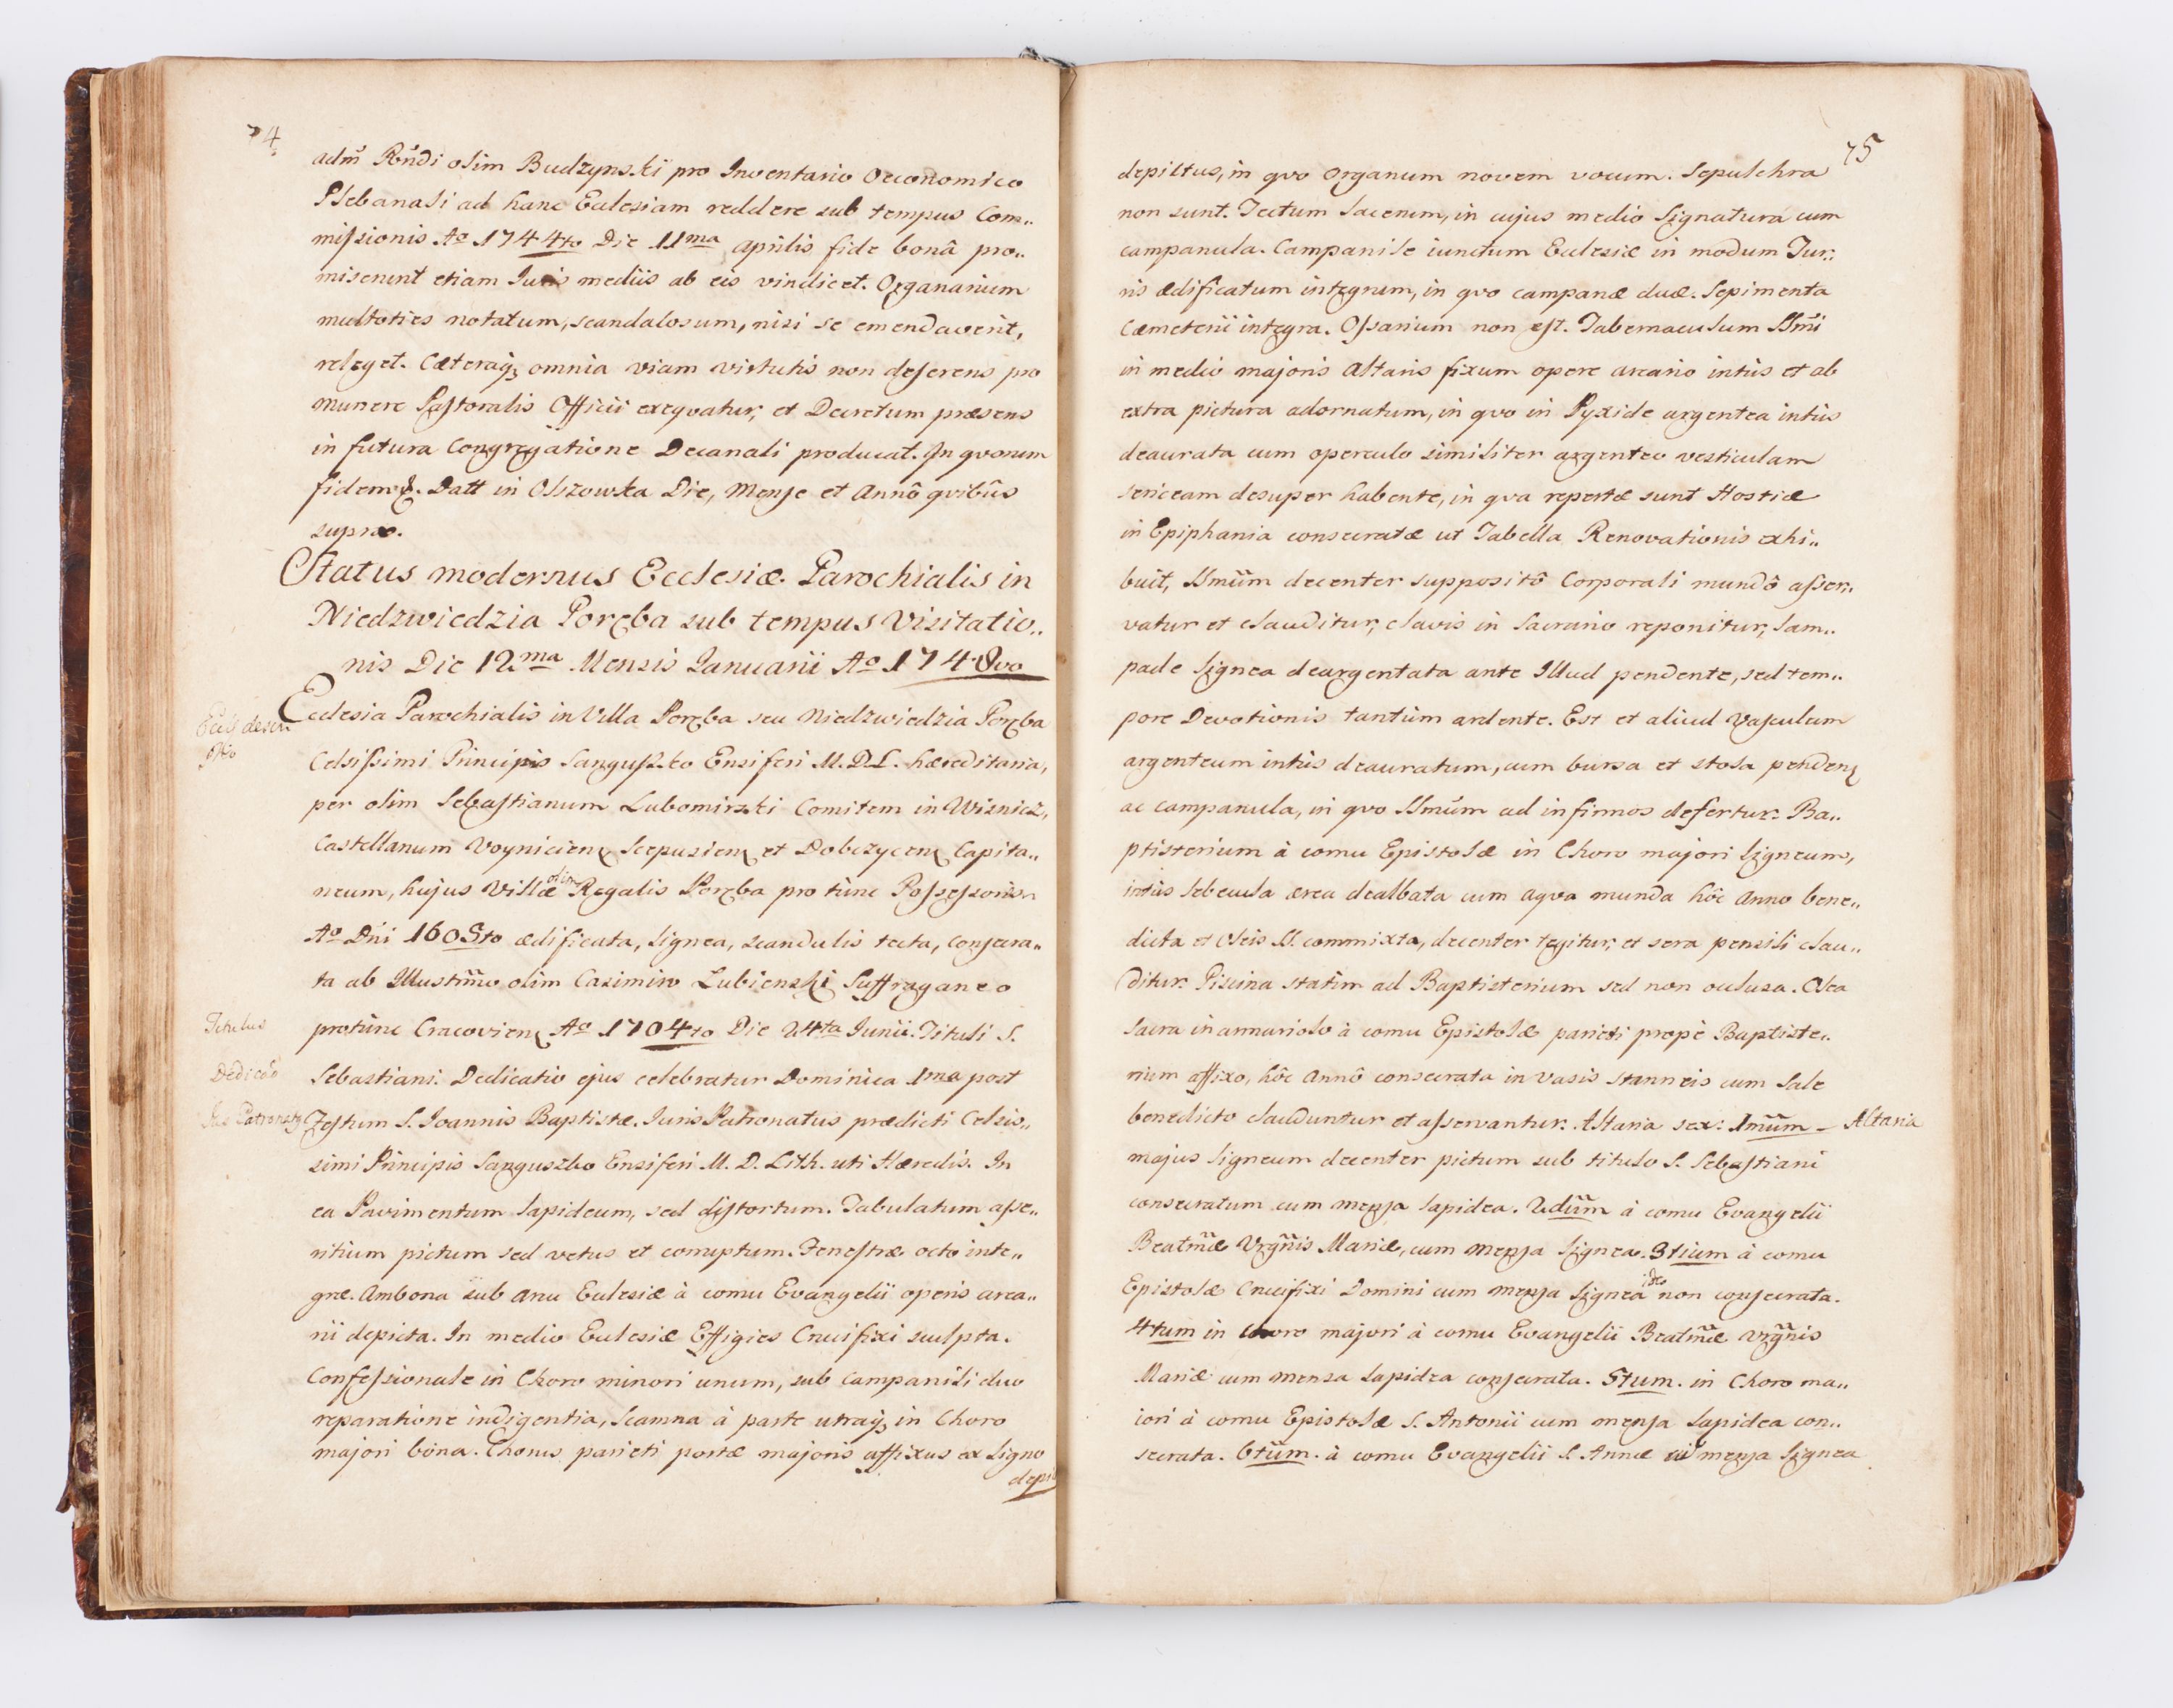 74.
adm̃ Rñdi olim Budzynski pro Inventario Oeconomico
Plebanali ad hanc Ecclesiam reddere sub tempus Com„
mißionis Aº 1744to Die 11ma Aprilis fide bonâ pro„
miserunt etiam Juris mediis ab eis vindicet. Organarium
multoties notatum, scandalosum, nisi se emendaverit,
releget. Cæteraq; omnia viam virtutis non deserens pro
munere Pastoralis Officii exeqvatur, et Decretum præsens
in futura Congregatione Decanali producat. In qvorum
fidem &. Datt in Olszowka Die, Mense et Annô qvibûs
supra.
Status modernus Ecclesiæ Parochialis in
Niedzwiedzia Poręba sub tempus Visitatio„
nis Die 12ma Mensis Januarii Aº 1748vo
Eccl descri
ptio
Ecclesia Parochialis in Villa Poręba seu Niedzwiedzia Poręba
Celsißimi Principis Sanguszko Ensiferi M. D. L. hæreditaria,
per olim Sebastianum Lubomirski Comitem in Wisnicz,
Castellanum Voynicien, Scepusien, et Dobczycen, Capita„
neum, hujus Villæ olim Regalis Poręba pro tùnc Poßeßorem
Aº Dñi 1605to ædificata, lignea, scandulis tecta, consecra„
ta ab Illustr̃mo olim Casimiro Lubienski Suffraganeo
Titulus
protùnc Cracovien, Aº 1704to Die 24ta Junii. Tituli S.
Dedicão
Sebastiani. Dedicatio ejus celebratur Dominica 1ma post
Jus Patronatg
Festum S. Joannis Baptistæ. Juris Patronatus prædicti Celsis„
simi Principis Sanguszko Ensiferi M. D. Lith. uti Hæredis. In
ea Pavimentum lapideum, sed distortum. Tabulatum aße„
ritium pictum sed vetus et corruptum. Fenestræ octo inte„
græ. Ambona sub Arcu Ecclesiæ à cornu Evangelii operis arca„
rii depicta. In medio Ecclesiæ Effigies Crucifixi sculpta.
Confeßionale in Choro minori unum, sub Campanili duo
reparatione indigentia, Scamna à parte utraq; in Choro
majori bona. Chorus parieti portæ majoris affixus ex ligno
depi
75
depictus, in qvo Organum novem vocum. Sepulchra
non sunt. Tectum lacerum, in cujus medio Signatura cum
campanula. Campanile iunctum Ecclesiæ in modum Tur„
ris ædificatum integrum, in qvo campanæ duæ. Sepimenta
Cæmeterii integra. Oßarium non est. Tabernaculum SSmi
in medio majoris Altaris fixum opere arcario intùs et ab
extra pictura adornatum, in qvo in Pyxide argentea intùs
deaurata cum operculo similiter argenteo vesticulam
sericeam desuper habente, in qva repertæ sunt Hostiæ
in Epiphania consecratæ ut Tabella Renovationis exhi„
buit, SSmũm decenter suppositô Corporali mundô aßer„
vatur et clauditur, clavis in Sacrario reponitur, lam„
pade lignea deargentata ante Illud pendente, sed tem„
pore Devotionis tantùm ardente. Est et aliud Vasculum
argenteum intùs deauratum, cum bursa et stola penden,
ac campanula, in qvo SSmũm ad infirmos defertur. Ba„
ptisterium à cornu Epistolæ in Choro majori ligneum,
intùs lebecula ærea dealbata cum aqva munda hôc Anno bene„
dicta et Oleis SS. commixta, decenter tegitur, et sera pensili clau„
ditur. Piscina statim ad Baptisterium sed non oclusa. Olea
Sacra in armariolo à cornu Epistolæ parieti propè Baptiste„
rium affixo, hôc Annô consecrata in vasis stanneis cum Sale
benedicto clauduntur et aßervantur. Altaria sex: 1mũm – Altaria
majus ligneum decenter pictum sub titulo S. Sebastiani
consecratum cum mensa lapidea. 2dũm à cornu Evangelii
Beatm̃æ Vrgñis Mariæ, cum mensa lignea. 3tium à cornu
Epistolæ Crucifixi Domini cum mensa lignea ideo non consecrata.
4tum in Choro majori à cornu Evangelii Beatm̃æ Vrgñis
Mariæ cum mensa lapidea consecrata. 5tum. in Choro ma„
iori à cornu Epistolæ S. Antonii cum mensa lapidea con„
secrata. 6tũm. à cornu Evangelii S. Annæ mensa lignea